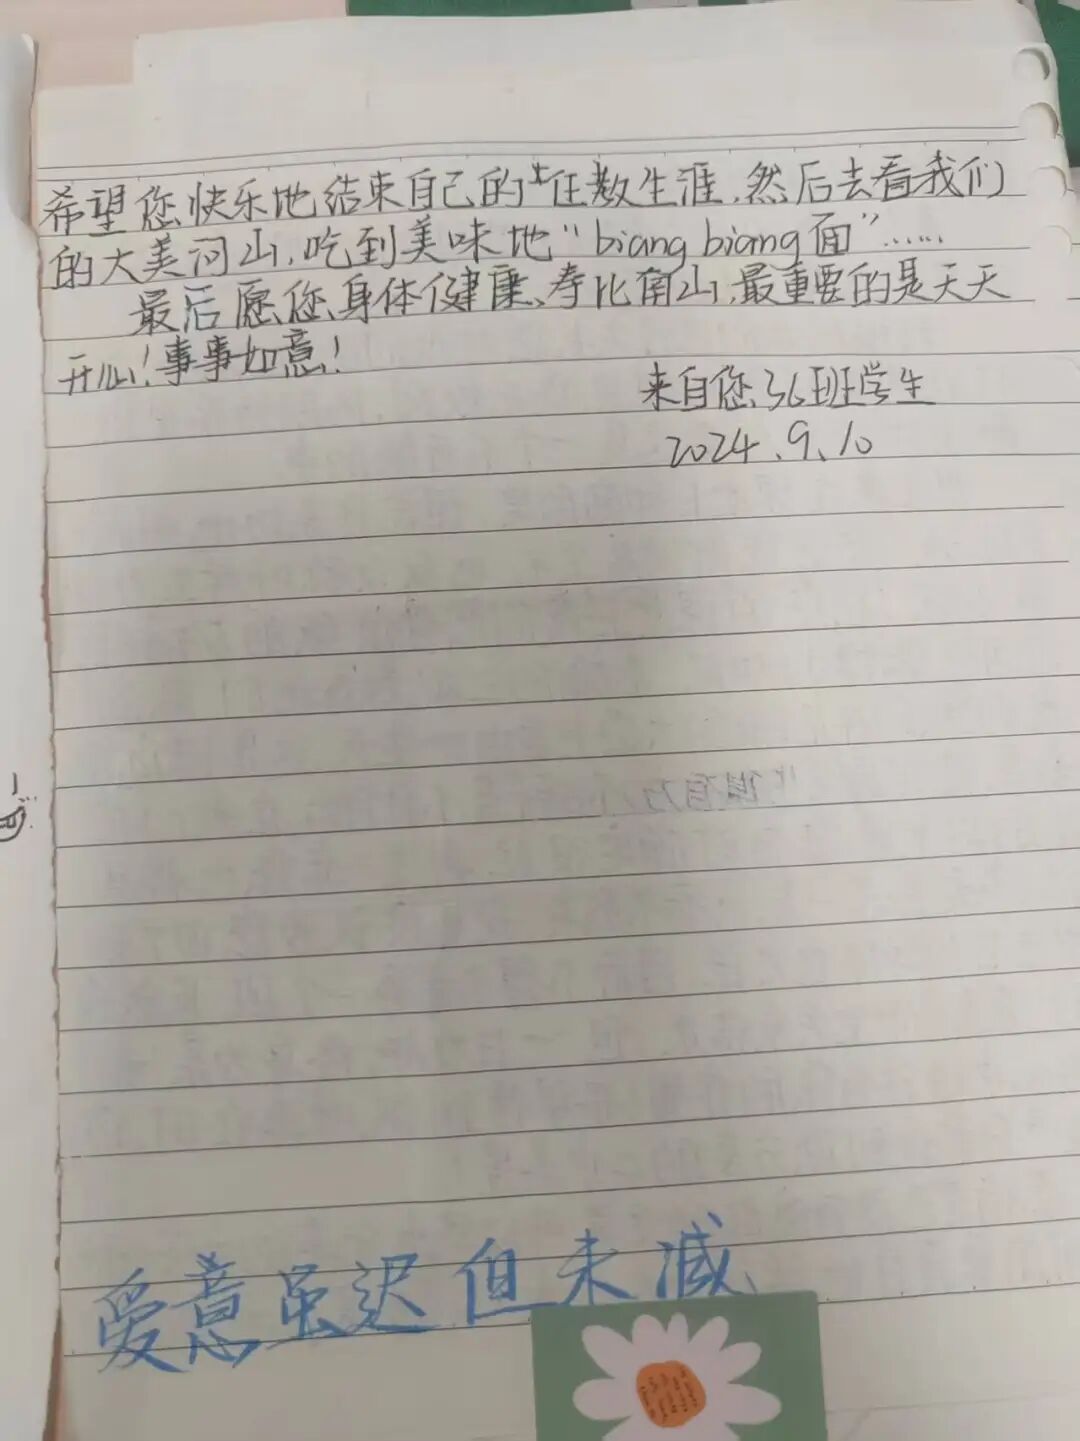 希望您快乐地结束自己的任教生涯,然后去看我们
的大美河山,吃到美味地“biangbiang面”……
最后愿您身体健康、寿比南山,最重要的是天天
开心!事事如意!
来自您36班学生
2024.9.10
爱意虽迟但未减